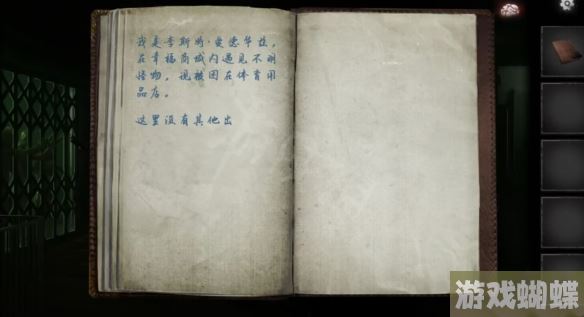 我是李斯特·爱德华兹，
在幸福商城内遇见不明
怪物，现被困在体育用
品店。
这里没有其他出
游戏蝴蝶